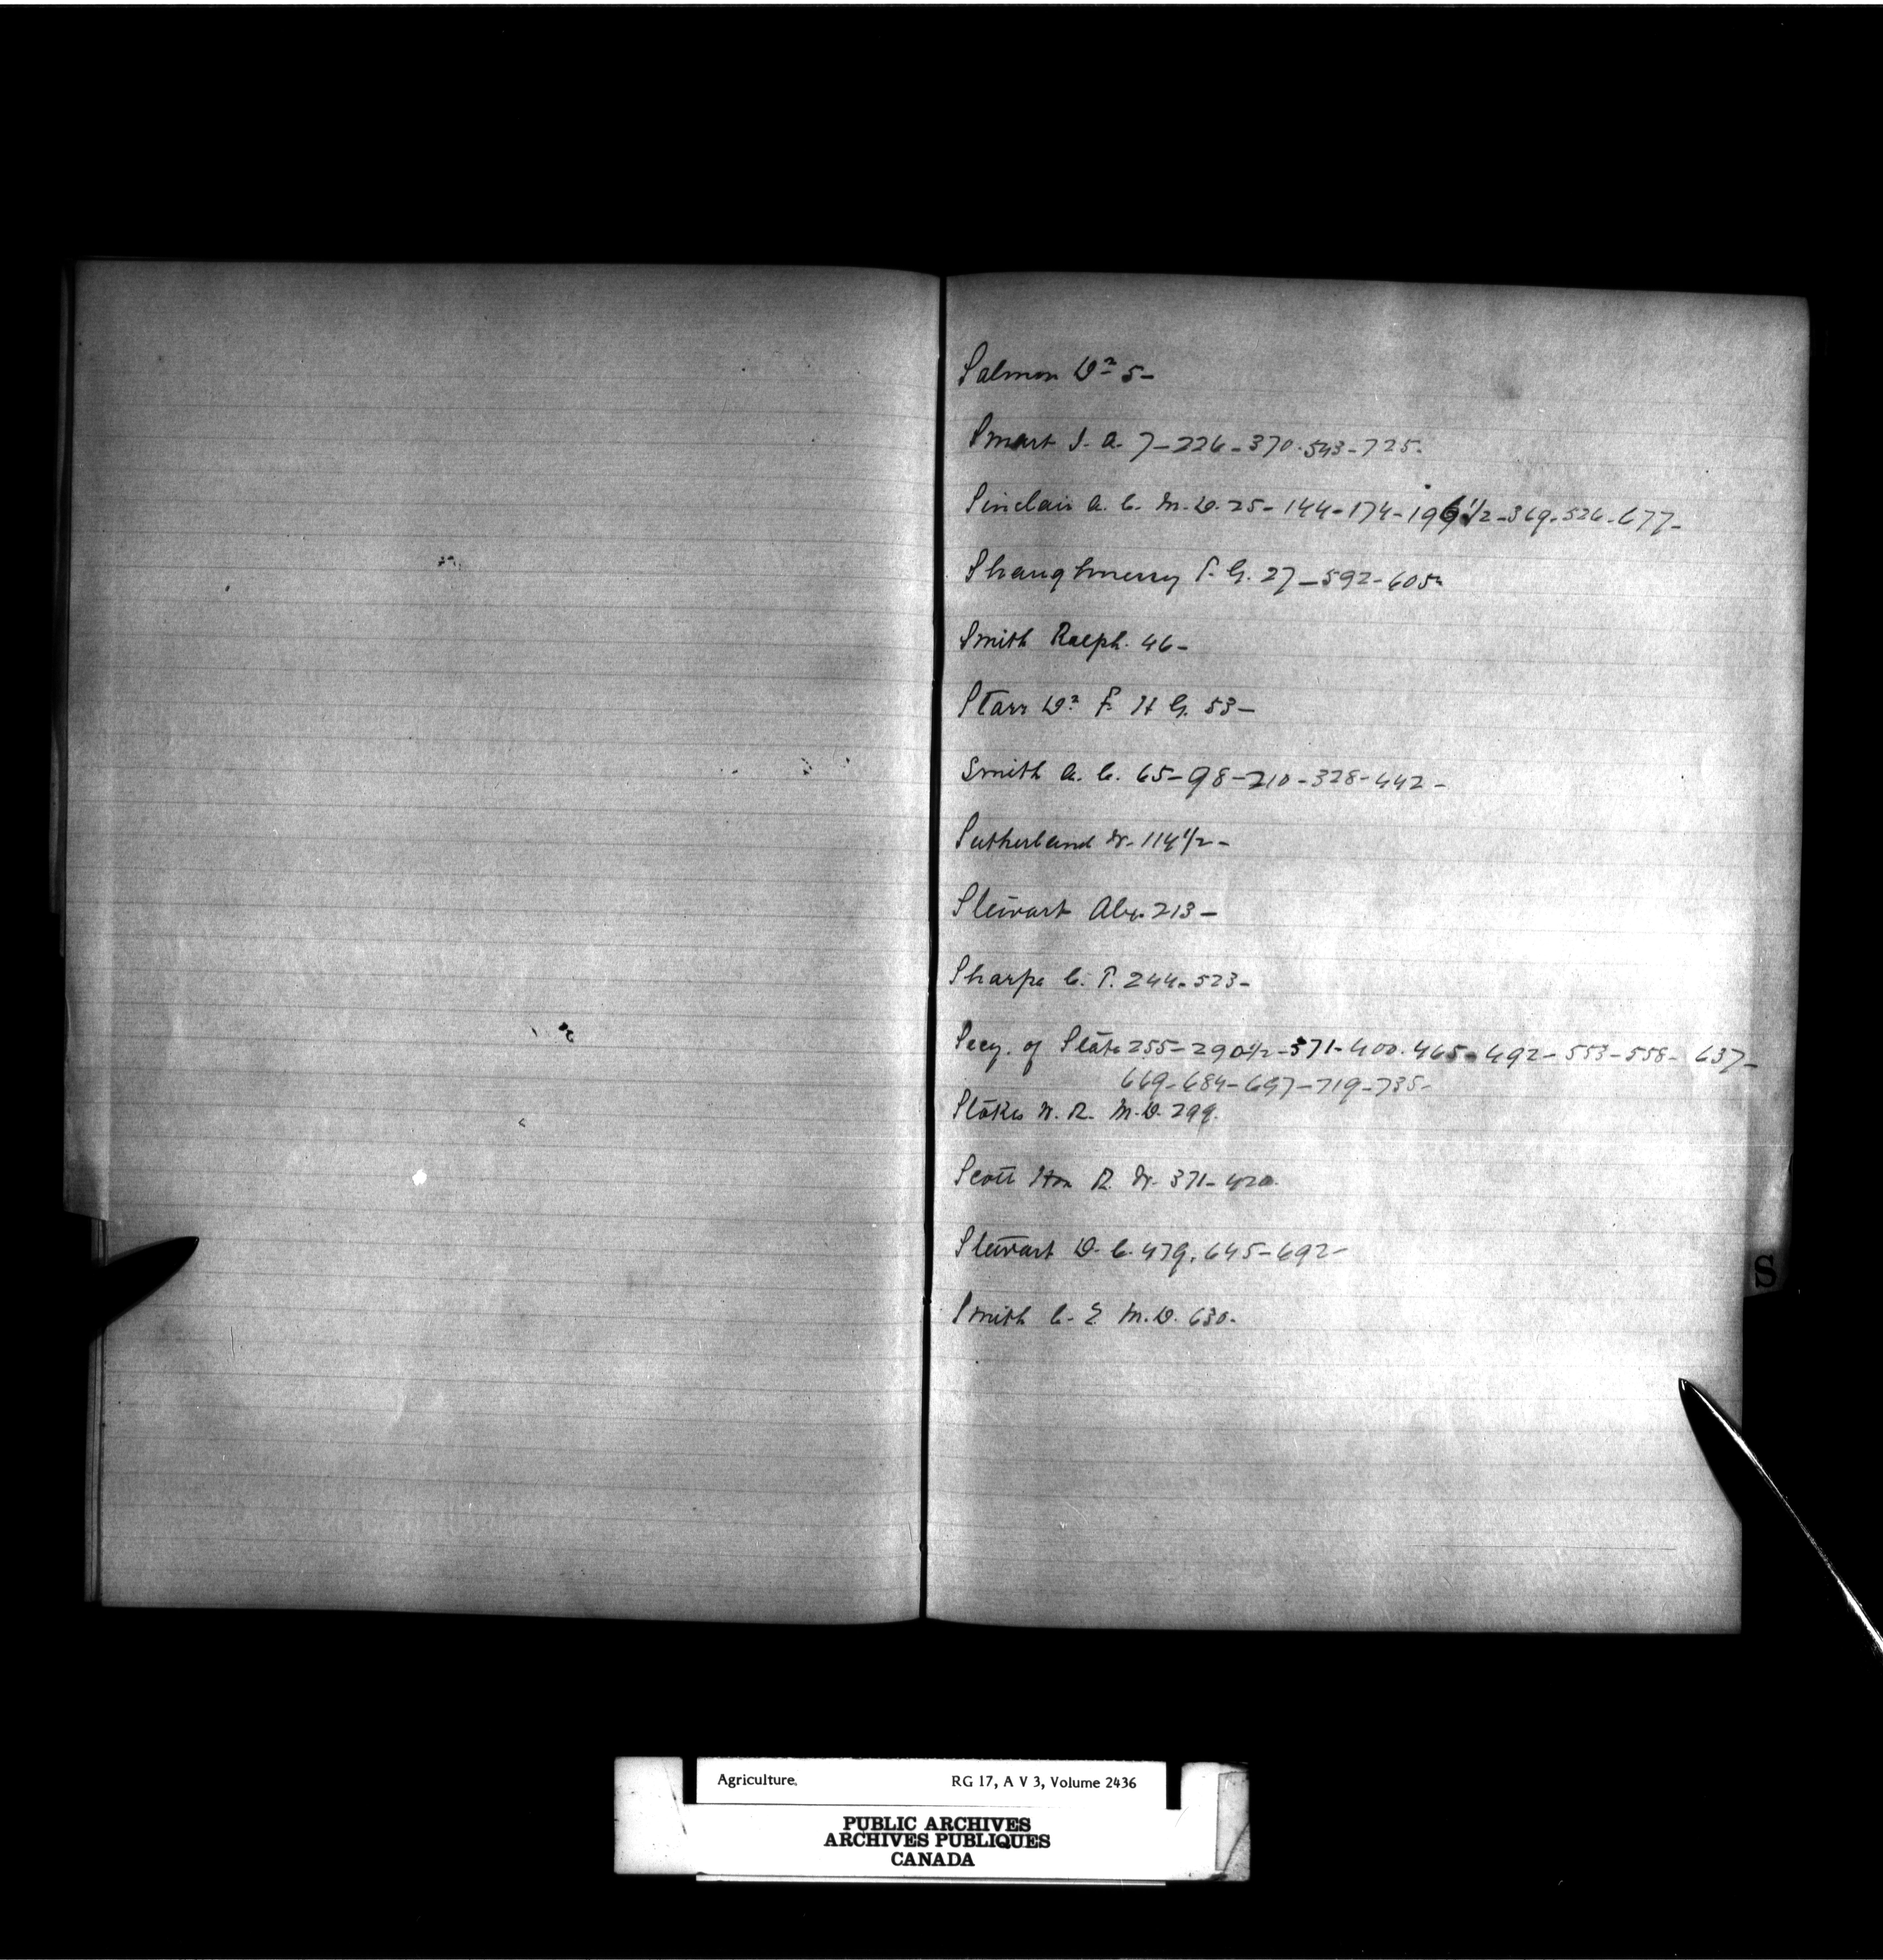 Salmon Dr 5-
Smart J. A. 7-226-370.543-725-
Sinclair A. C. M.D. 25-144-174-196 1/2-369-526-677-
Shaughnessy T. G. 27-592-605-
Smith Ralph. 46-
Starr Dr F. H G. 53-
Smith A. C. 65-98-210-328-442-
Sutherland W. 114 1/2-
Stewart Alex. 213-
Sharpe C. T. 244-523-
Secy. of State 255-290 1/2-371-400.465-492-553-558-637-
669-684-697-719-735-
Stokes W. R. M.D. 299.
Scott Hon R. W. 371-420.
Stewart D. C. 479, 645-692-
Smith C. E M.D. 630-
S
Agriculture. RG 17, A V 3, Volume 2436
PUBLIC ARCHIVES
ARCHIVES PUBLIQUES
CANADA